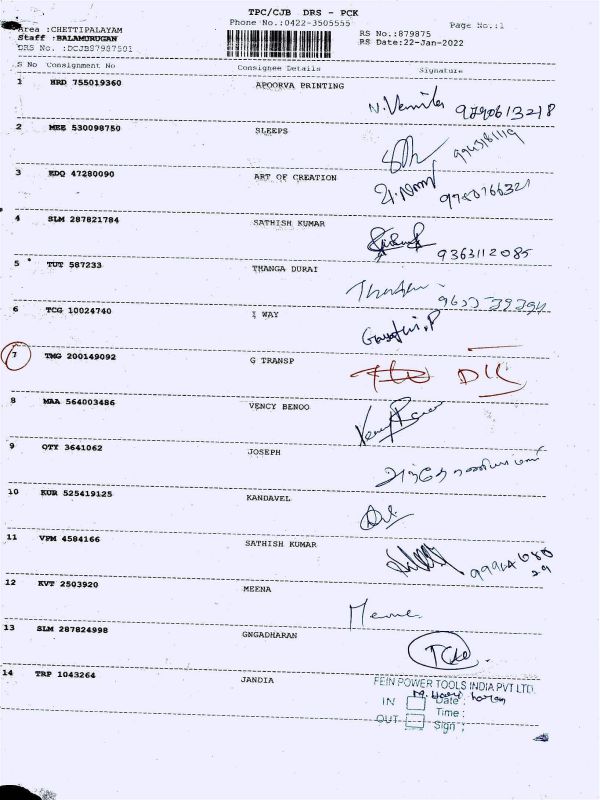 TPC/CJB DRS - PCK
Phone No.:0422-3505555
Page No.:1
Area :CHETTIPALAYAM
Staff :BALAMURUGAN
DRS No. :DCJB87987501
RS No.:879875
RS Date:22-Jan-2022
S No Consignment No Consignee Details Signature
1 HRD 755019360 APOORVA PRINTING
N. Vennila 9790613218
2 MEE 530098750 SLEEPS
3 EDQ 47280090 ART OF CREATION
4 SLM 287821784 SATHISH KUMAR
9363112085
5 TUT 587233 THANGA DURAI
6 TCG 10024740 I WAY
Gayathri.P
7 TMG 200149092 G TRANSP
8 MAA 564003486 VENCY BENOO
9 QTY 3641062 JOSEPH
10 KUR 525419125 KANDAVEL
11 VPM 4584166 SATHISH KUMAR
12 KVT 2503920 MEENA
13 SLM 287824998 GNGADHARAN
14 TRP 1043264 JANDIA
FEIN POWER TOOLS INDIA PVT LTD.
IN Date :
Time :
OUT Sign :